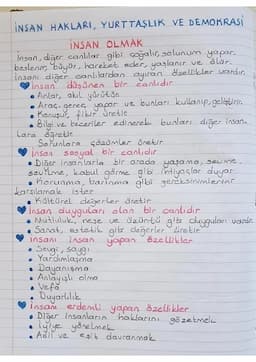 İNSAN HAKLARI, YURTTAŞLIK VE DEMOKRASİ
İNSAN OLMAK
İnsan, diğer canlılar gibi çoğalır, solunum yapar,
beslenir, büyür, hareket eder, yaşlanır ve ölür.
İnsanı diğer canlılardan ayıran özellikler vardır.
İnsan düşünen bir canlıdır
Anlar, akıl yürütür.
Araç, gereç yapar ve bunları kullanıp, geliştirir.
Konuşur, fikir üretir
Bilgi ve beceriler edinerek bunları diğer insan
lara öğretir
Sorunlara çözümler üretir
İnsan sosyal bir canlıdır
Diğer insanlarla bir arada yaşama, sevme,
sevilme, kabul görme gibi ihtiyaçlar duyar.
Korunma, barınma gibi gereksinimlerini
karşılamak ister
Kültürel değerler üretir
İnsan duyguları olan bir canlıdır
Mutluluk, neşe ve üzüntü gibi duyguları vardır.
Sanat, estetik gibi değerler üretir
İnsanı İnsan yapan özellikler
Sevgi, saygı
Yardımlaşma
Dayanışma
Anlayışlı olma
Vefa
Duyarlılık
İnsanı erdemli yapan özellikler
Diğer insanların haklarını gözetmek
İyiye yönelmek
Adil ve eşit davranmak